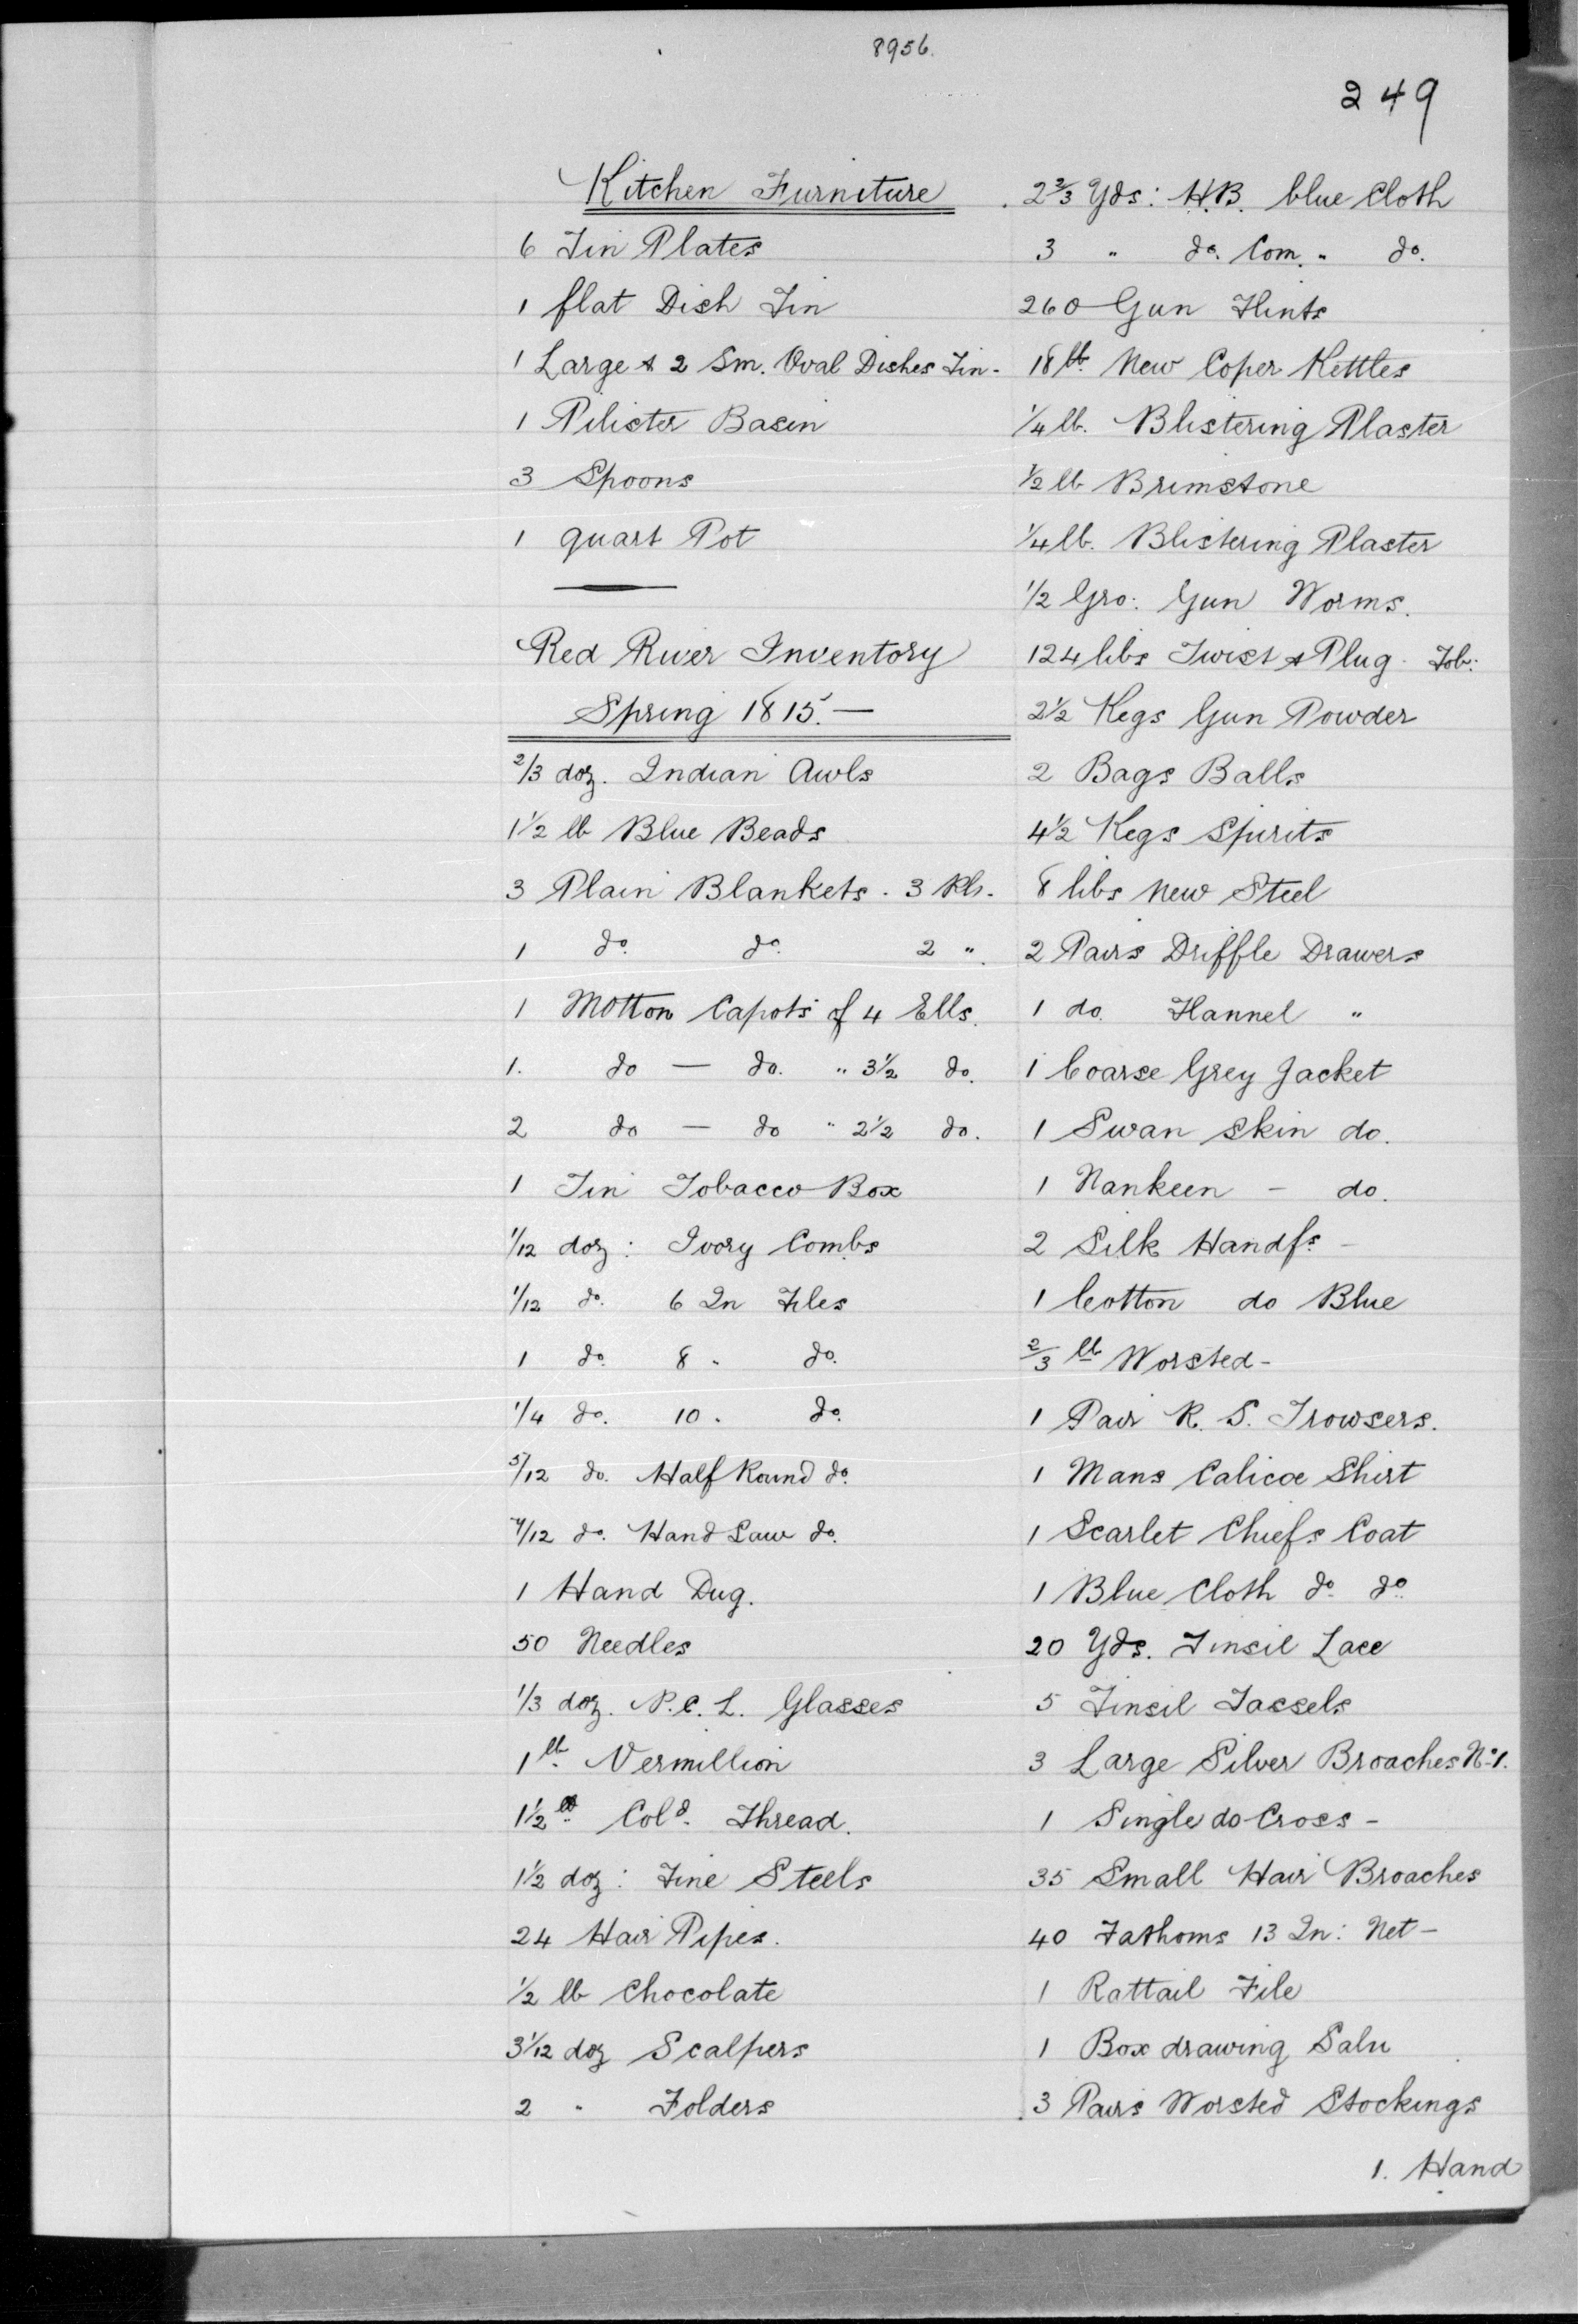 8956.
249
Kitchen Furniture
6 Tin Plates
1 flat Dish Tin
1 Large & 2 Sm. Oval Dishes Tin-
1 Pilister Basin
3 Spoons
1 quart Pot
Red River Inventory
Spring 1815.—
2/3 doz. Indian Awls
1 1/2 lb Blue Beads
3 Plain Blankets. 3 Pls.
1 do. do. 2 ".
1 Motton Capots of 4 Ells.
1. do — do. " 3 1/2 do.
2 do — do " 2 1/2 do.
1 Tin Tobacco Box
1/12 doz: Ivory Combs
1/12 do. 6 In Files
1 do. 8 " do.
1/4 do. 10 . do.
5/12 do. Half Round do.
7/12 do. Hand Saw do.
1 Hand Dug.
50 Needles
1/3 doz. P.C.L. Glasses
1 lb. Vermillion
1 1/2 lb. Cold. Thread.
1 1/2 doz: Fine Steels
24 Hair Pipes.
1/2 lb Chocolate
3 1/12 doz Scalpers
2 " Folders
2 2/3 Yds: H.B. blue Cloth
3 " do. Com. " do.
260 Gun Flints
18 lb. New Coper Kettles
1/4 lb. Blistering Plaster
1/2 lb Brimstone
1/4 lb. Blistering Plaster
1/2 Gro: Gun Worms.
124 libs Twist & Plug. Tob:
2 1/2 Kegs Gun Powder
2 Bags Balls
4 1/2 Kegs Spirits
8 libs New Steel
2 Pairs Driffle Drawers
1 do. Flannel "
1 Coarse Grey Jacket
1 Swan Skin do.
1 Nankeen – do.
2 Silk Handfs. –
1 Cotton do Blue
2/3 lb Worsted-
1 Pair R. S. Trowsers.
1 Mans Calicoe Shirt
1 Scarlet Chiefs Coat
1 Blue Cloth do. do.
20 Yds. Tinsil Lace
5 Tinsil Tassels
3 Large Silver Broaches No. 1.
1 Single do Cross-
35 Small Hair Broaches
40 Fathoms 13 In: Net-
1 Rattail File
1 Box drawing Salu
3 Pairs Worsted Stockings
1. Hand